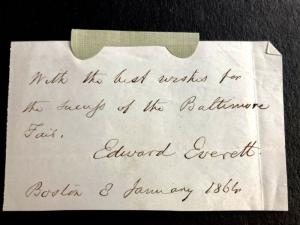 With the best wishes for
the success of the Baltimore
Fair.
Edward Everett.
Boston 8 January 1864